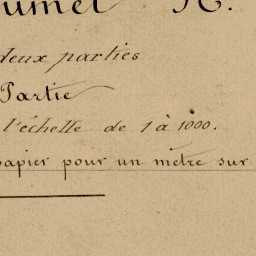 umel N.
deux parties
Partie
l'échelle de 1 à 1000.
papier pour un mètre sur